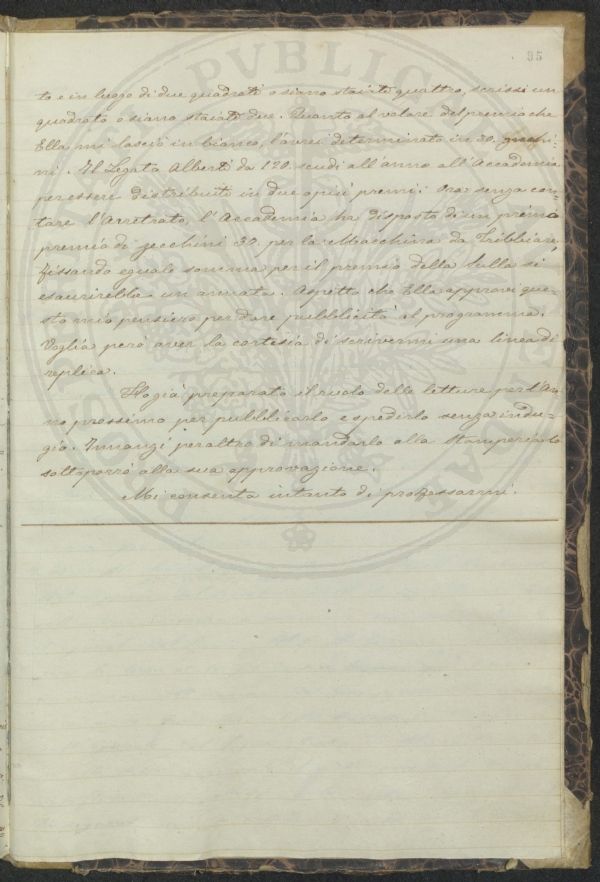 95
to e in luogo di due quadrati o siano staiate quattro, scrissi un
quadrato o siano staiate due. Quanto al valore del premio che
Ella mi lasciò in bianco, l'avrei determinato in 30. zecchi-
ni. Il Legato Alberti dà 120. scudi all'anno all'Accademia
per essere distribuito in due o più premi. Ora senza con-
tare l'arretrato, l'Accademia ha disposto di un primo
premio di zecchini 30. per la Macchina da Tribbiare,
fissando eguale somma per il premio della Sulla si
esaurirebbe un annata. Aspetto che Ella approvi que-
sto mio pensiero per dare pubblicità al programma.
Voglia però aver la cortesia di scrivermi una linea di
replica.
Ho già preparato il ruolo delle letture per l'An-
no prossimo per pubblicarlo e spedirlo senza indu-
gio. Innanzi peraltro di mandarlo alla stamperia lo
sottoporrò alla sua approvazione.
Mi consenta intanto di professarmi.